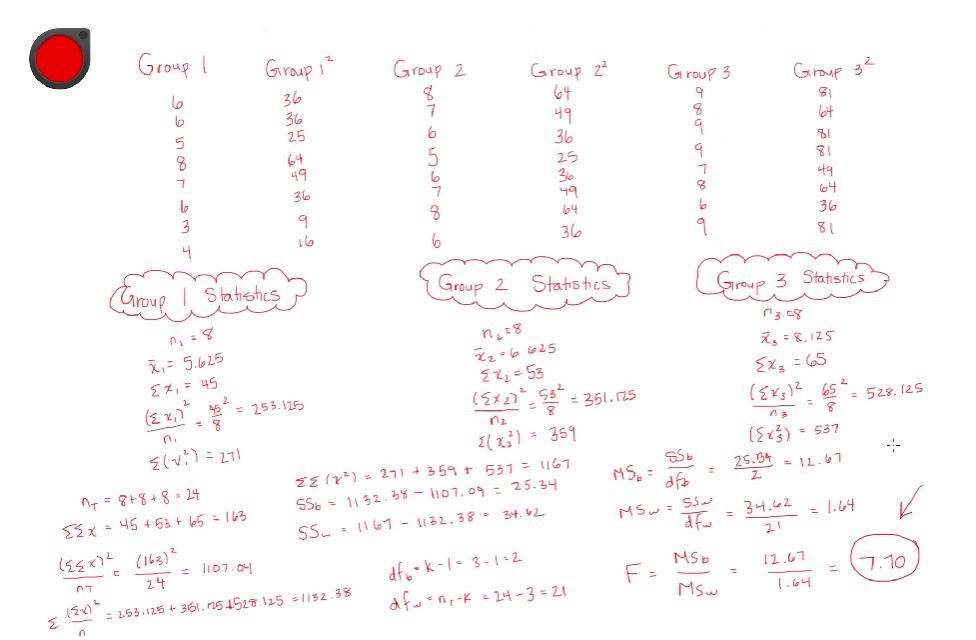 Group 1 Group 1² Group 2 Group 2² Group 3 Group 3²
6 36 8 64 9 81
6 36 7 49 8 64
5 25 6 36 9 81
8 64 5 25 9 81
7 49 6 36 7 49
6 36 7 49 8 64
3 9 8 64 6 36
4 16 6 36 9 81
Group 1 Statistics
n₁ = 8
x̄₁ = 5.625
Σx₁ = 45
(Σx₁)²/n₁ = 45²/8 = 253.125
Σ(x₁²) = 271
Group 2 Statistics
n₂ = 8
x̄₂ = 6.625
Σx₂ = 53
(Σx₂)²/n₂ = 53²/8 = 351.125
Σ(x₂²) = 359
Group 3 Statistics
n₃ = 8
x̄₃ = 8.125
Σx₃ = 65
(Σx₃)²/n₃ = 65²/8 = 528.125
(Σx₃²) = 537
n_T = 8+8+8 = 24
ΣΣx = 45 + 53 + 65 = 163
(ΣΣx)²/n_T = (163)²/24 = 1107.04
Σ (Σx)²/n = 253.125 + 351.125 + 528.125 = 1132.38
ΣΣ(x²) = 271 + 359 + 537 = 1167
SS_b = 1132.38 - 1107.09 = 25.34
SS_w = 1167 - 1132.38 = 34.62
df_b = k-1 = 3-1 = 2
df_w = n_T-k = 24-3 = 21
MS_b = SS_b/df_b = 25.34/2 = 12.67
MS_w = SS_w/df_w = 34.62/21 = 1.64
F = MS_b/MS_w = 12.67/1.64 = 7.70